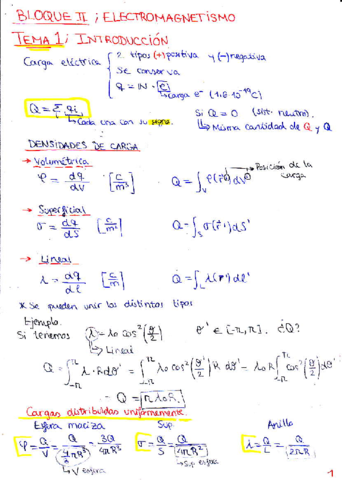 BLOQUE II ; ELECTROMAGNETISMO
TEMA 1 ; INTRODUCCIÓN
Carga eléctrica { 2 tipos (+) positiva y (-) negativa
Se conserva
q = N · e
↳ carga e⁻ (1.6·10⁻¹⁹C)
Q = Σ qi
↳ Cada una con su signo.
Si Q = 0 (sist. neutro).
↳ Misma cantidad de Q y Q
DENSIDADES DE CARGA
→ Volumétrica
φ = dq/dV [C/m³] Q = ∫_V φ(r')dV'
→ Posición de la carga
→ Superficial
σ = dq/dS [C/m²] Q = ∫_S σ(r')dS'
→ Lineal
λ = dq/dl [C/m] Q = ∫_L λ(r')dl'
* Se pueden unir los distintos tipos
Ejemplo.
Si tenemos λ = λo cos²(θ'/2) θ' ∈ [-π,π]. ¿Q?
↳ Lineal
Q = ∫_-π^π λ·Rdθ' = ∫_-π^π λo cos²(θ'/2) R dθ' = λo R ∫_-π^π cos²(θ'/2) dθ'
Q = πλoR
Cargas distribuidas uniformemente
Esfera maciza Sup. Anillo
φ = Q/V = Q/(4/3 πR³) = 3Q/4πR³ σ = Q/S = Q/4πR² λ = Q/L = Q/2πR
↳ V esfera ↳ Sup esfera
1